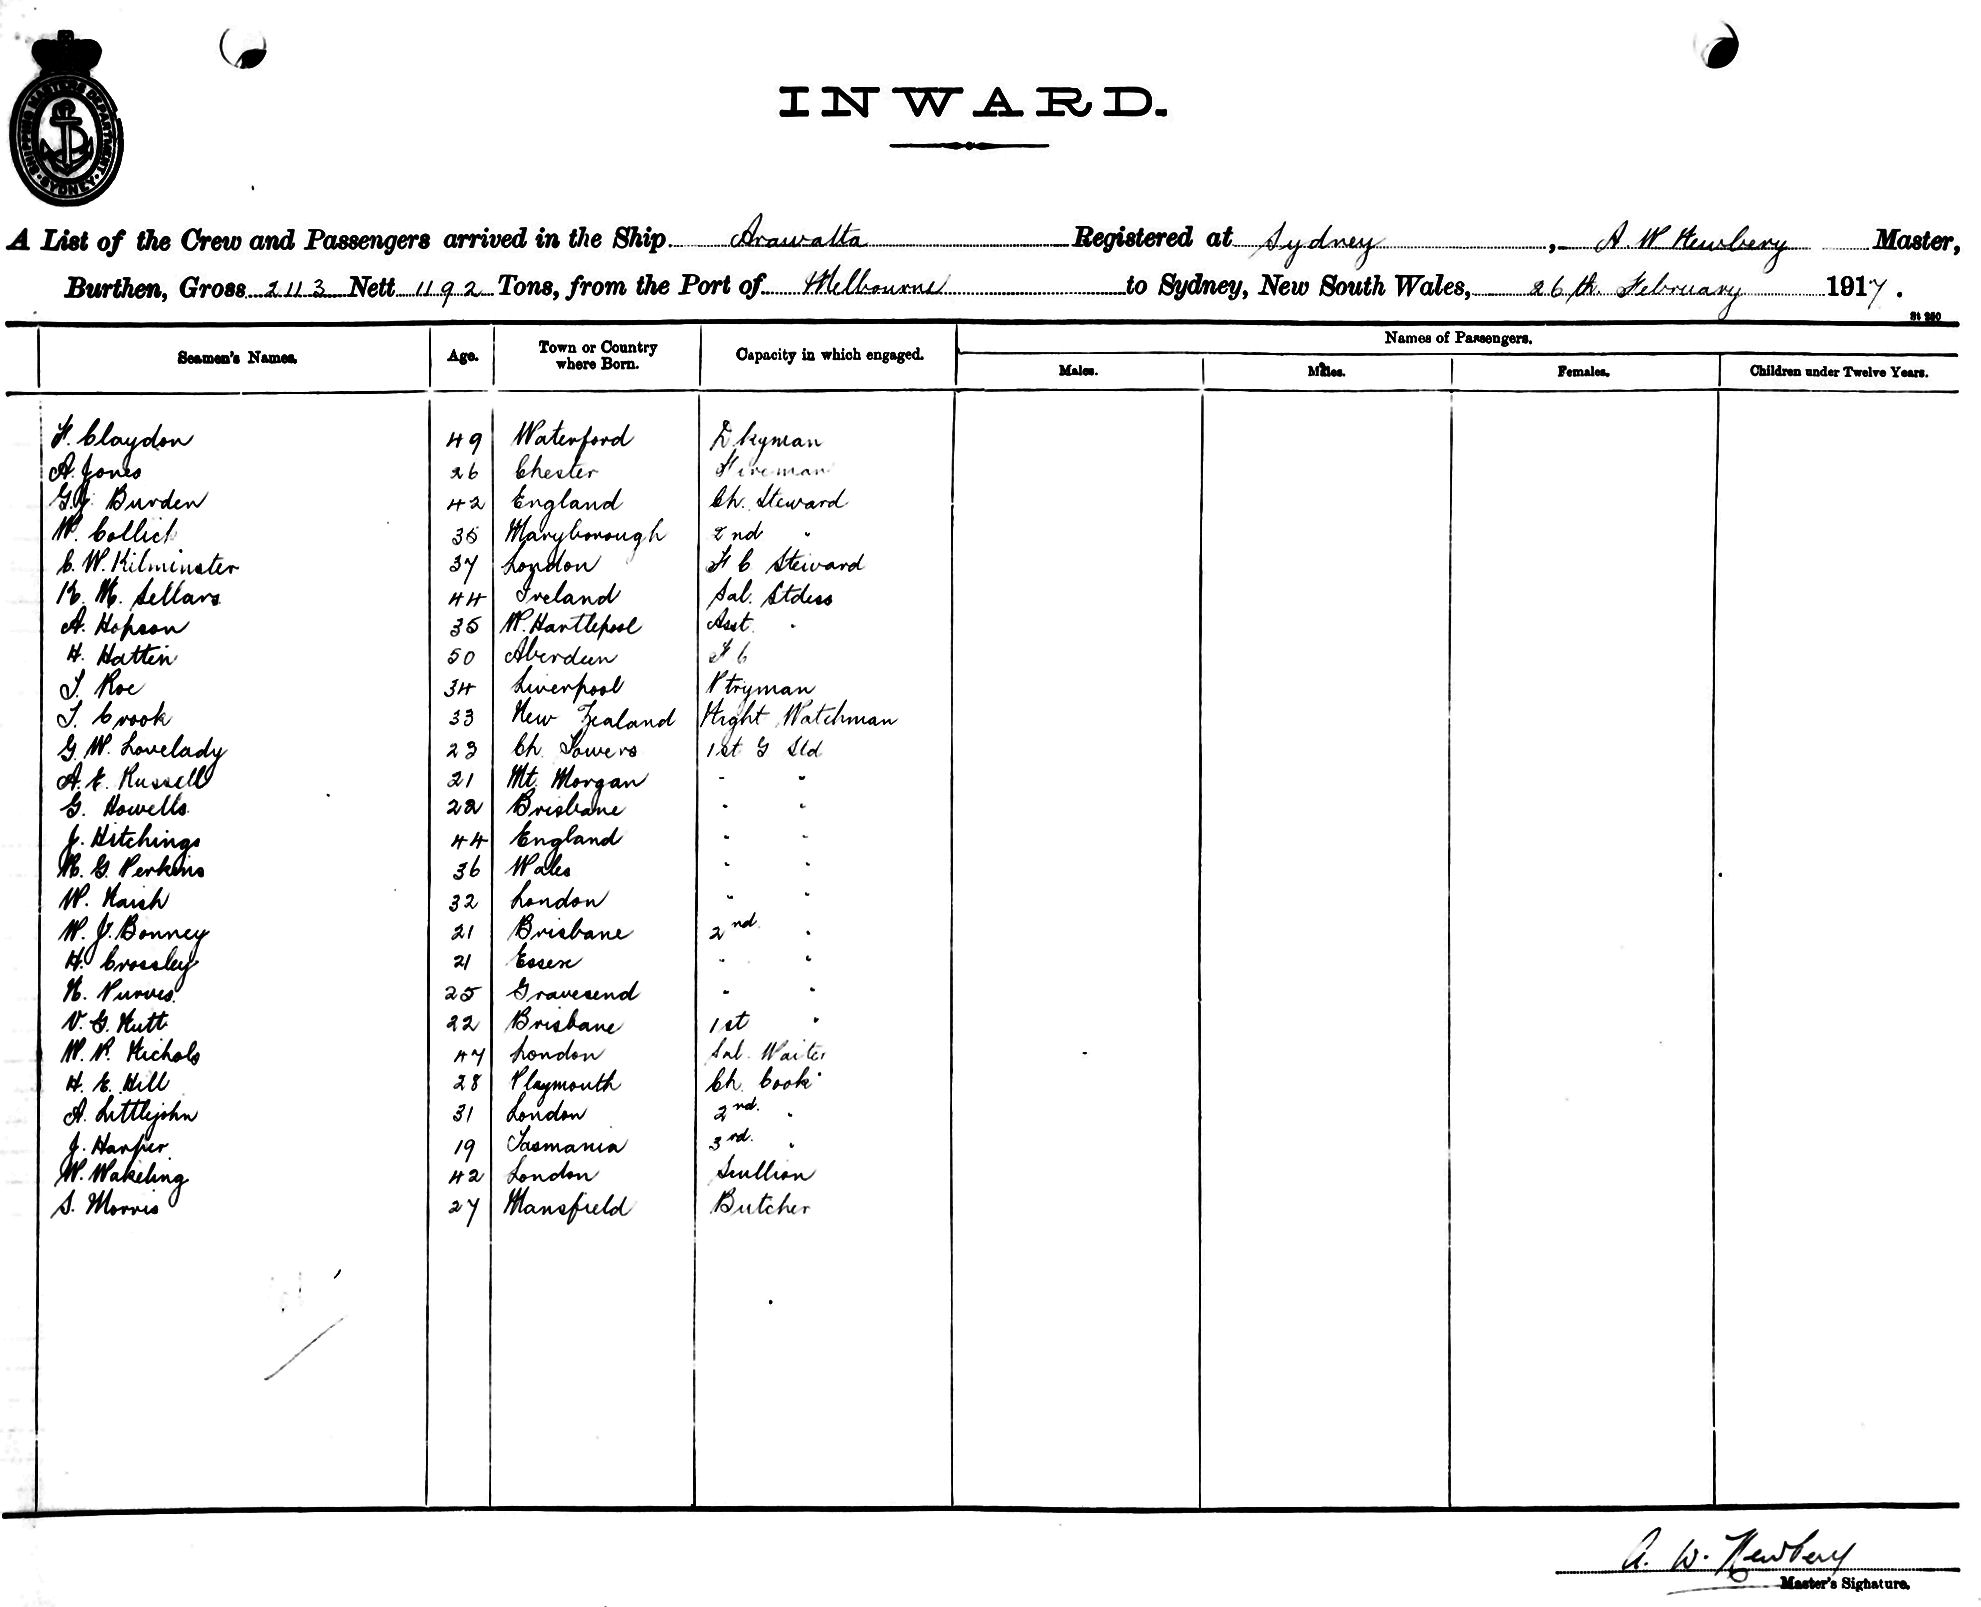 SHIPPING MASTER'S DEPARTMENT
SYDNEY
INWARD.
A List of the Crew and Passengers arrived in the Ship Arawatta Registered at Sydney, A W Newbery Master,
Burthen, Gross 2113 Nett 1192 Tons, from the Port of Melbourne to Sydney, New South Wales, 26th February 1917.
Names of Passengers.
Seamen's Names. Age. Town or Country where Born. Capacity in which engaged. Males. Males. Females. Children under Twelve Years.
F. Claydon 49 Waterford Dkyman
A. Jones 26 Chester Fireman
G.J. Burden 42 England Ch. Steward
W. Collick 35 Maryborough 2nd "
C. W. Kilminster 37 London F C Steward
K. M. Sellars 44 Ireland Sal. Stdess
A. Hopson 35 W. Hartlepool Asst. "
H. Hattin 50 Aberdeen F C
T. Roe 34 Liverpool Ptryman
T. Crook 33 New Zealand Night Watchman
G. W. Lovelady 23 Ch. Towers 1st G Std
A. E. Russell 21 Mt. Morgan " "
G. Howells 22 Brisbane " "
J. Hitchings 44 England " "
R. G. Perkins 36 Wales " "
W. Naish 32 London " "
W. J. Bonney 21 Brisbane 2nd "
H. Crossley 21 Essex " "
N. Purves 25 Gravesend " "
V. G. Nutt 22 Brisbane 1st "
W. P. Nichols 47 London Sal. Waiter
H. E. Hill 28 Playmouth Ch. Cook
A. Littlejohn 31 London 2nd. "
J. Harper 19 Tasmania 3rd. "
W. Wakeling 42 London Scullion
S. Morris 27 Mansfield Butcher
A. W. Newbery
Master's Signature.